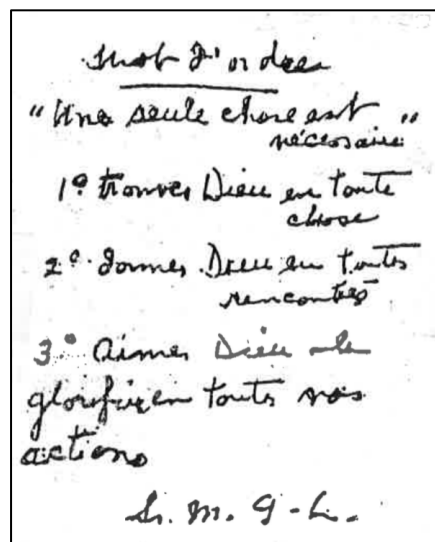 Mot d'ordre
"Une seule chose est
nécessaire"
1º trouver Dieu en toute
chose
2º donner Dieu en toutes
rencontres
3º Aimer Dieu le
glorifier en toutes nos
actions
Sr. M. G-L.